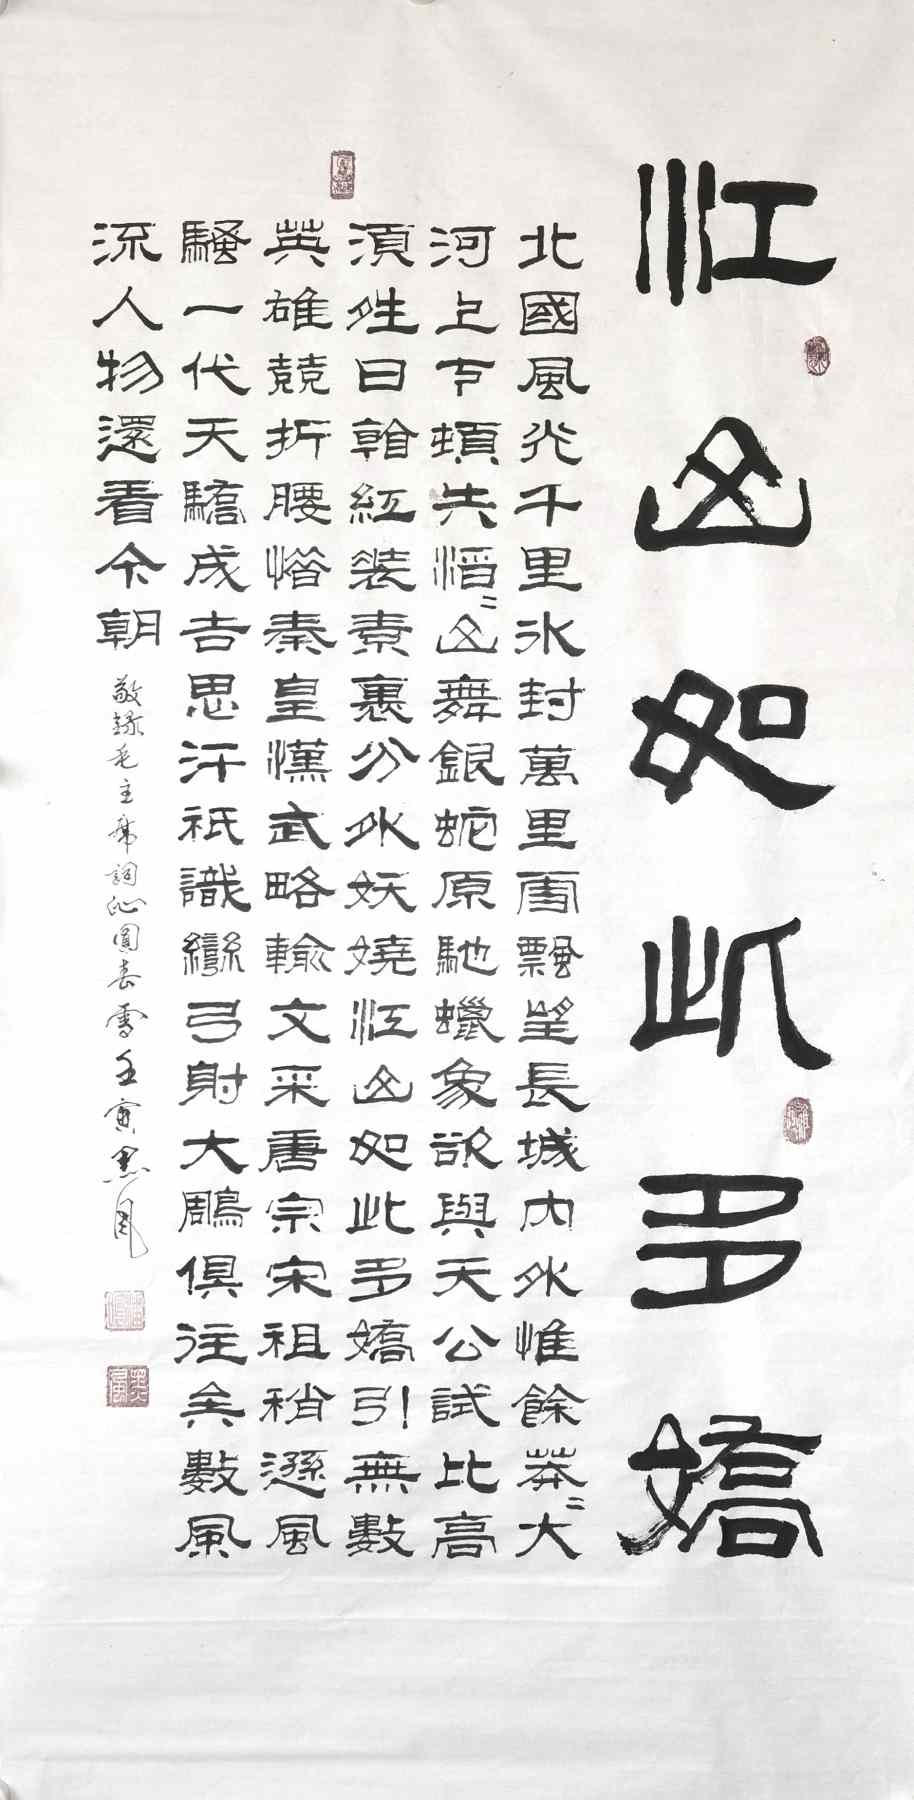 江山如此多嬌
北國風光千里冰封萬里雪飄望長城內外惟餘莽〻大
河上下頓失滔〻山舞銀蛇原馳蠟象欲與天公試比高
須夝日看紅裝素裹分外妖嬈江山如此多嬌引無數
英雄競折腰惜秦皇漢武略輸文采唐宗宋祖稍遜風
騷一代天驕成吉思汗祇識彎弓射大鵰俱往矣數風
流人物還看今朝
敬錄毛主席詞沁園春雪壬寅墨風